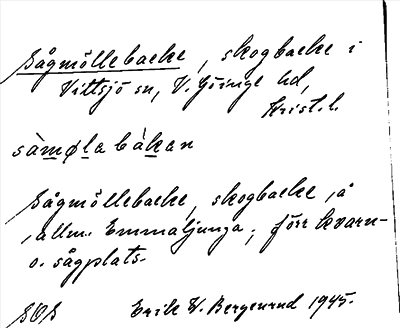 Sågmöllebacke, skogbacke i
Vittsjö sn, V. Göinge hd,
Krist. l.
sàmøla bàkan
Sågmöllebacke, skogbacke, å
, allm. Emmaljunga, förr kvarn-
o. sågplats.
SOS Erik W. Bergenrud 1945.